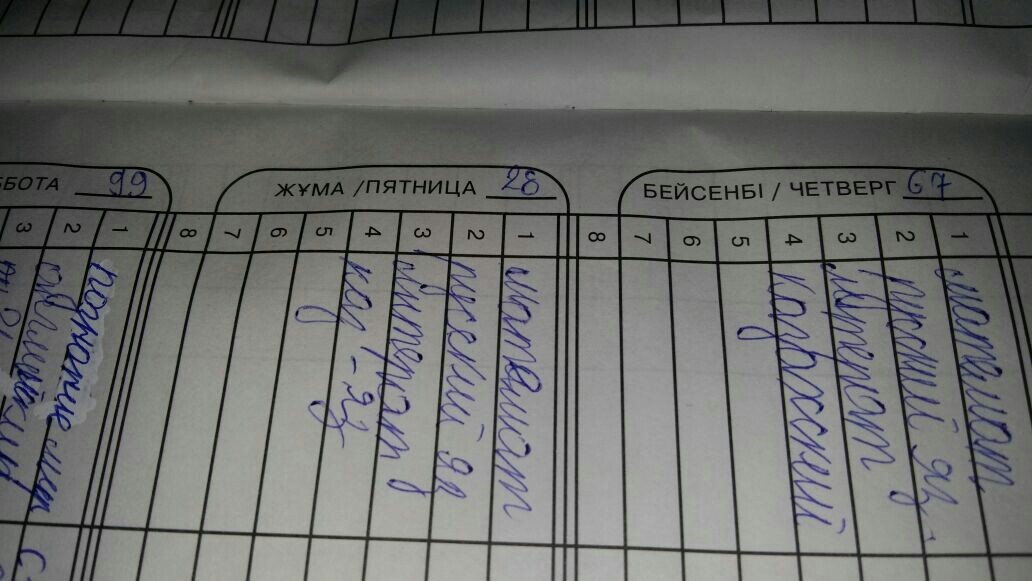 БЕЙСЕНБІ / ЧЕТВЕРГ 67
1 математ.
2 русский яз.
3 литерат
4 казахский
5
6
7
8
ЖҰМА /ПЯТНИЦА 28
1 математ
2 русский яз
3 литерат
4 каз-яз
5
6
7
8
ББОТА 99
1 познание мир
2
3